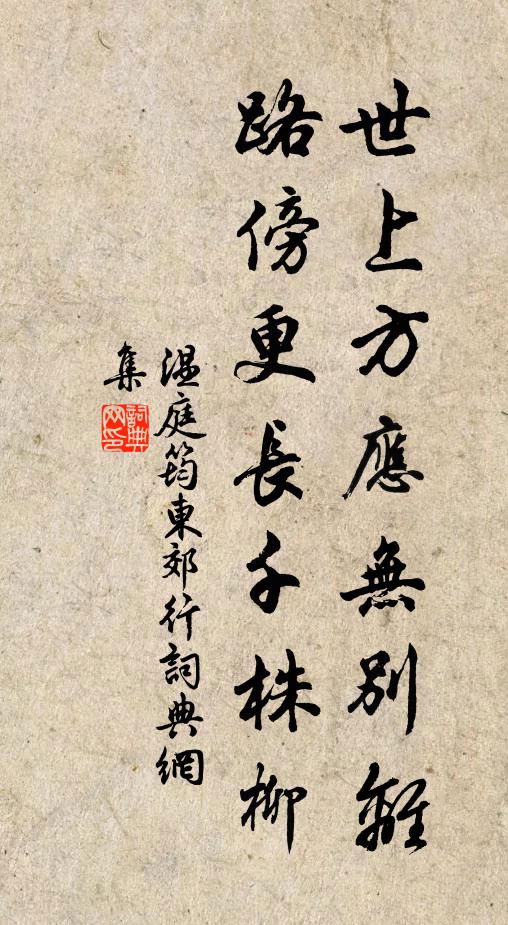 世上方應無別離
路傍更長千株柳
溫庭筠東郊行詞典網
集
詞典
网印